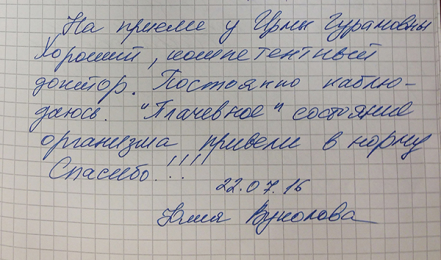 На приеме у Ирмы Гурамовны
Хороший, компетентный
доктор. Постоянно наблю-
даюсь. "Плачевное" состояние
организма привели в норму
Спасибо!!!
22.07.16
Юлия Вуколова